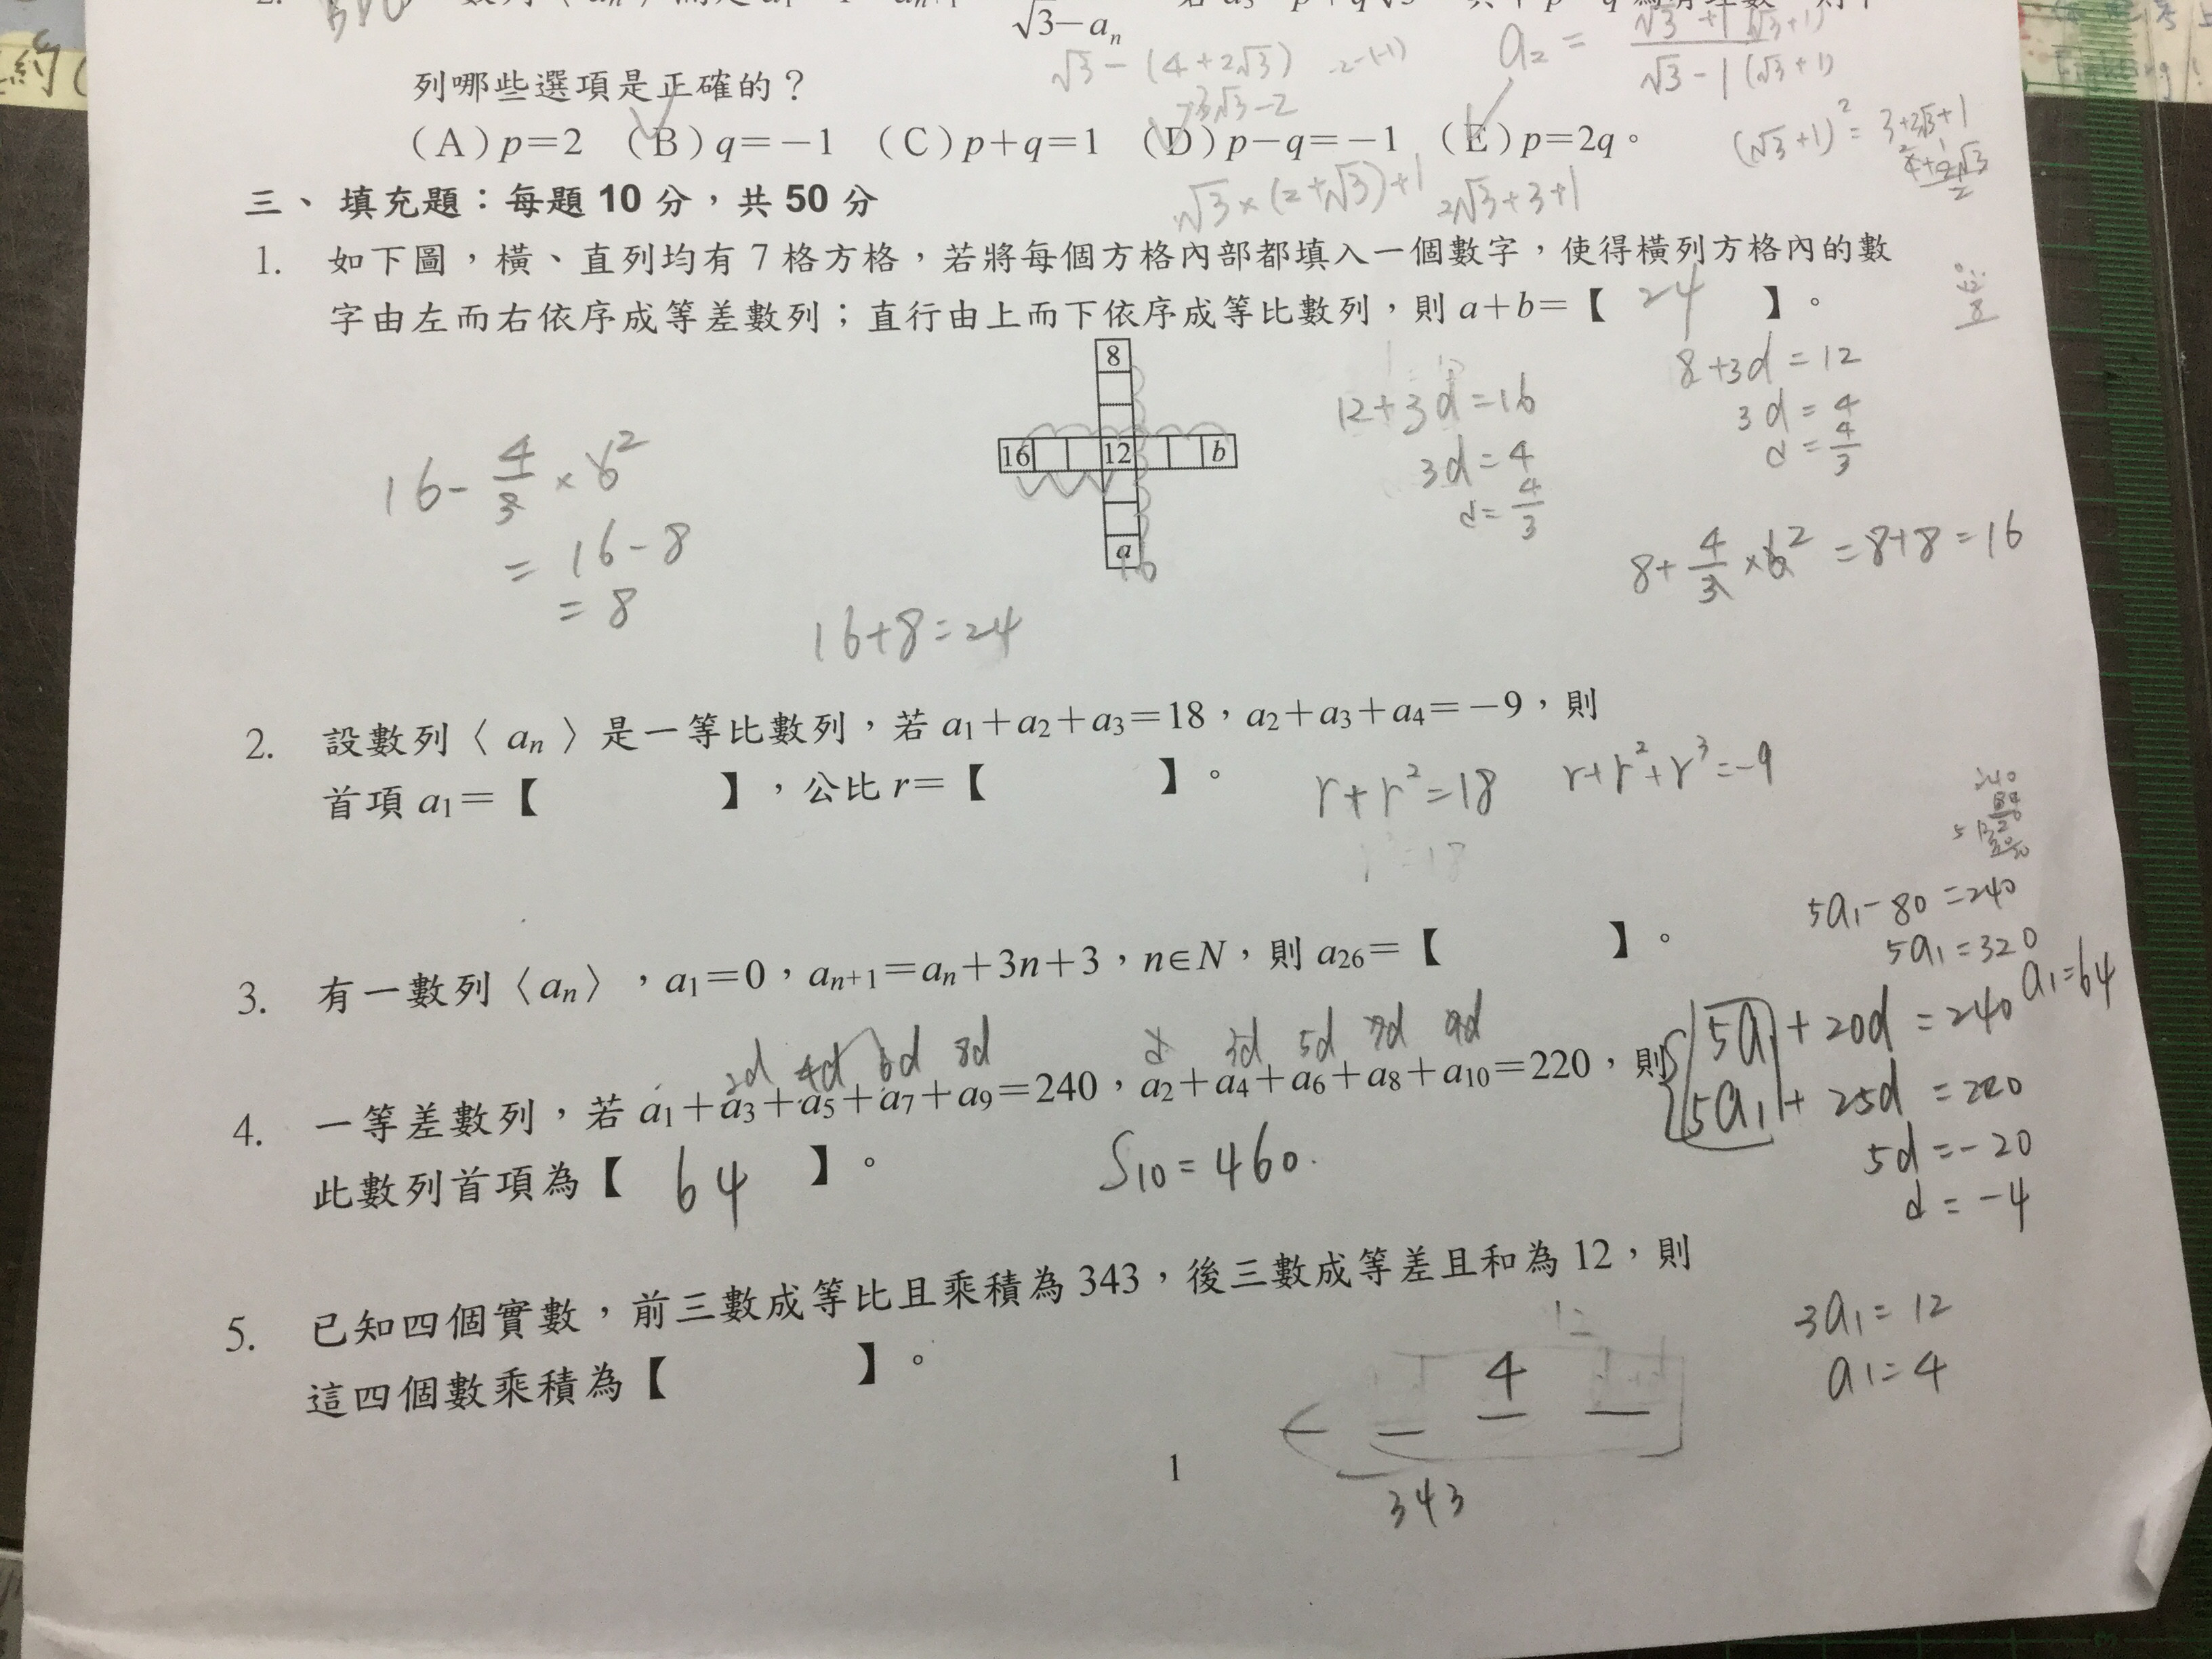 √3−aₙ
√3−(4+2√3)
a₂=
列哪些選項是正確的？
(A)p=2 (B)q=−1 (C)p+q=1 (D)p−q=−1 (E)p=2q。
√3×(2+√3)+1 2√3+3+1
三、填充題：每題 10 分，共 50 分
1. 如下圖，橫、直列均有 7 格方格，若將每個方格內部都填入一個數字，使得橫列方格內的數
字由左而右依序成等差數列；直行由上而下依序成等比數列，則 a+b=【 24 】。
8
16 12 b
a
16
16−4/3×6
=16−8
=8
16+8=24
12+3d=16
3d=4
d=4/3
8+3d=12
3d=4
d=4/3
8+4/3×6=8+8=16
2. 設數列〈aₙ〉是一等比數列，若 a₁+a₂+a₃=18，a₂+a₃+a₄=−9，則
首項 a₁=【 】，公比 r=【 】。
r+r²=18 r+r²+r³=−9
3. 有一數列〈aₙ〉，a₁=0，aₙ₊₁=aₙ+3n+3，n∈N，則 a₂₆=【 】。
5a₁−80=240
5a₁=320
a₁=64
2d 4d 6d 8d d 3d 5d 7d 9d
4. 一等差數列，若 a₁+a₃+a₅+a₇+a₉=240，a₂+a₄+a₆+a₈+a₁₀=220，則
此數列首項為【 64 】。
S₁₀=460.
5a₁+20d=240
5a₁+25d=220
5d=−20
d=−4
5. 已知四個實數，前三數成等比且乘積為 343，後三數成等差且和為 12，則
這四個數乘積為【 】。
12
4
343
3a₁=12
a₁=4
1